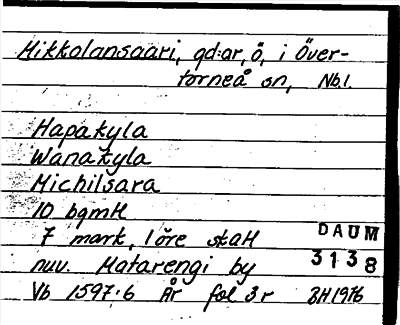 Mikkolansaari, gd:ar, ö, i Över-
torneå sn, Nb.l.
Hapakyla
Wanakyla
Michilsara
10 bgmH
7 mark, 1 öre skaH
nuv. Matarengi by
DAUM
3138
Vb 1597:6 År fol 3r BH 1976